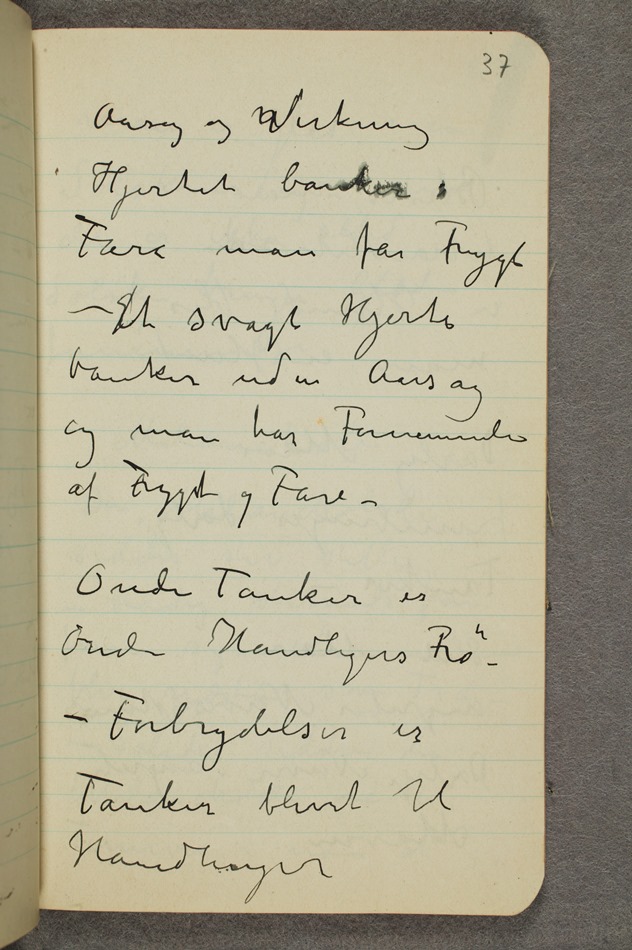 37
Aarsag og Virkning
Hjertet banker i
Fare man får Frygt
– Et svagt Hjerte
banker uden Aarsag
og man har Fornemmelse
af Frygt og Fare –
Onde Tanker er
onde Handligers Frö" –
– Forbrydelser er
Tanker blevet til
Handlinger